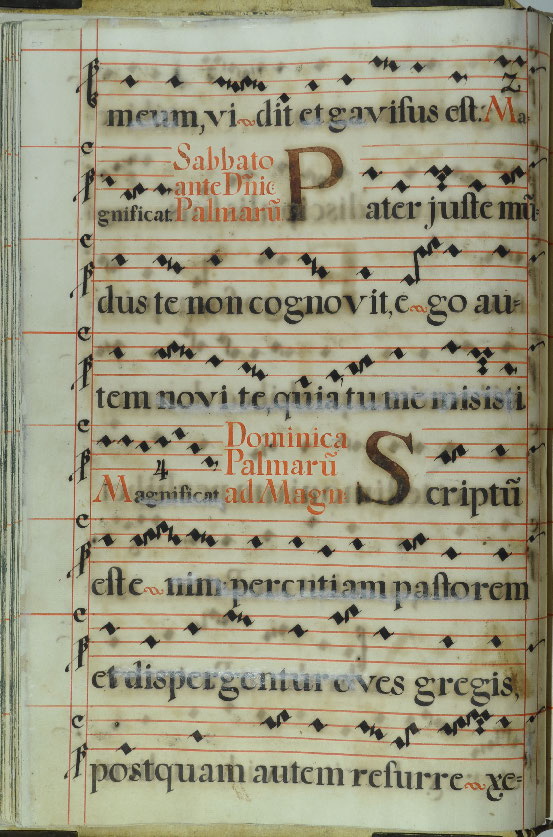 2
meum, vidit et gavisus est: Ma
Sabbato
ante Dñic
gnificat. Palmarũ Pater juste mũ-
dus te non cognovit, ego au-
tem novi te, quia tu me misisti.
4
Dominica
Palmarũ
Magnificat ad Magni Scriptũ
este enim percutiam pastorem
et dispergentur oves gregis,
postquam autem resurrexe-